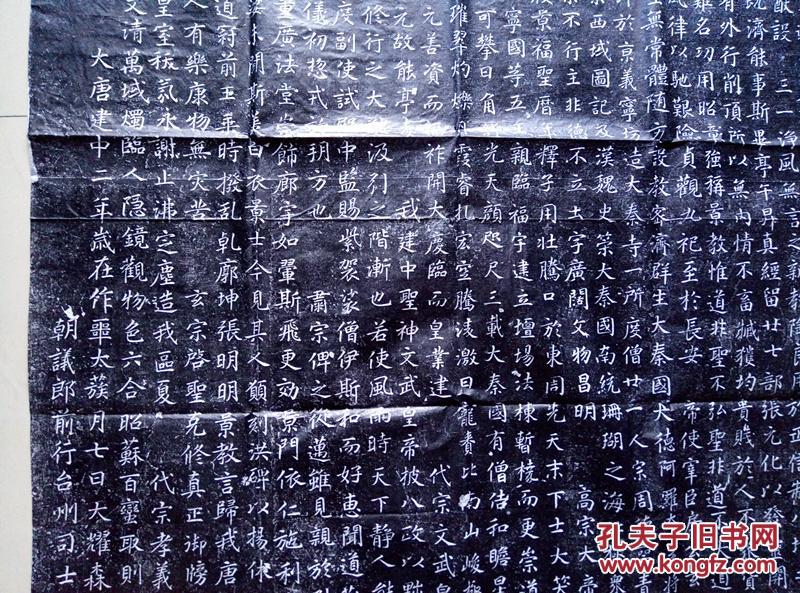 設三一淨風無言之新教陶良用於正信制八境之
既濟能事斯畢亭午昇真經留廿七部張元化以發靈關
有外行削頂所以無內情不畜臧獲均貴賤於人不聚貨
難名功用昭彰強稱景教惟道非聖不弘聖非道不大道
風律以馳艱險貞觀九祀至於長安 帝使宰臣房公玄
無常體隨方設教密濟群生大秦國大德阿羅本遠將
於京義寧坊造大秦寺一所度僧廿一人宗周德喪青
西域圖記及漢魏史策大秦國南統珊瑚之海北極眾
景不行主非德不立土宇廣闊文物昌明 高宗大帝
景福聖曆年釋子用壯騰口於東周先天末下士大笑
寧國等五王親臨福宇建立壇場法棟暫橈而更崇道
可攀日角舒光天顏咫尺三載大秦國有僧佶和瞻星
璀翠灼爍丹霞睿扎宏空騰淩激日寵賚比南山峻極
元善資而福祚開大慶臨而皇業建 代宗文武皇
元故能亭毒 我建中聖神文武皇帝披八政以黜
修行之大猷汲引之階漸也若使風雨時天下靜人能
度副使試殿中監賜紫袈裟僧伊斯和而好惠聞道勤
儀初揔戎於朔方也 肅宗俾之從邁雖見親於臥
重廣法堂崇飾廊宇如翬斯飛更効景門依仁施利
未聞斯美白衣景士今見其人願刻洪碑以揚休
道冠前王乘時撥亂乹廓坤張明明景教言歸我唐
人有樂康物無灾苦 玄宗啓聖克修真正御牓
皇室祅氛永謝止沸定塵造我區夏 代宗孝義
文清萬域燭臨人隱鏡觀物色六合昭蘇百蠻取則
大唐建中二年歲在作噩太蔟月七日大耀森
朝議郎前行台州司士
孔夫子旧书网
www.kongfz.com